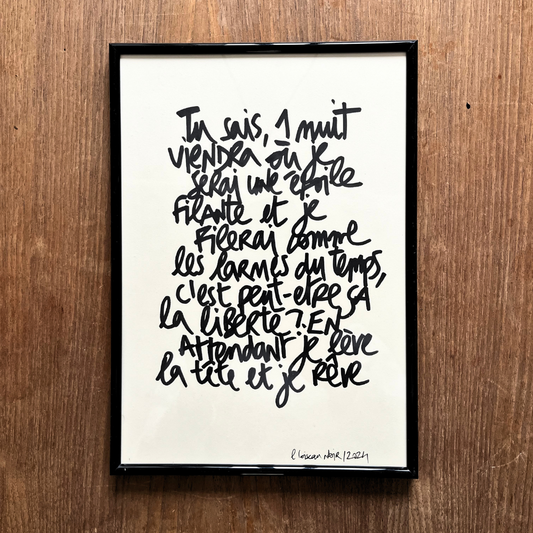 Tu sais, 1 nuit
viendra où je
serai une étoile
filante et je
filerai comme
les larmes du temps,
c'est peut-etre ça
la liberté ? En
attendant je lève
la tête et je rêve
NOIR/2024